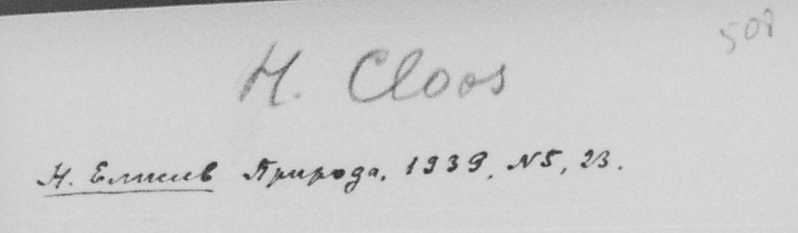 508
H. Cloos
Н. Елисеев Природа, 1939, N5, 23.